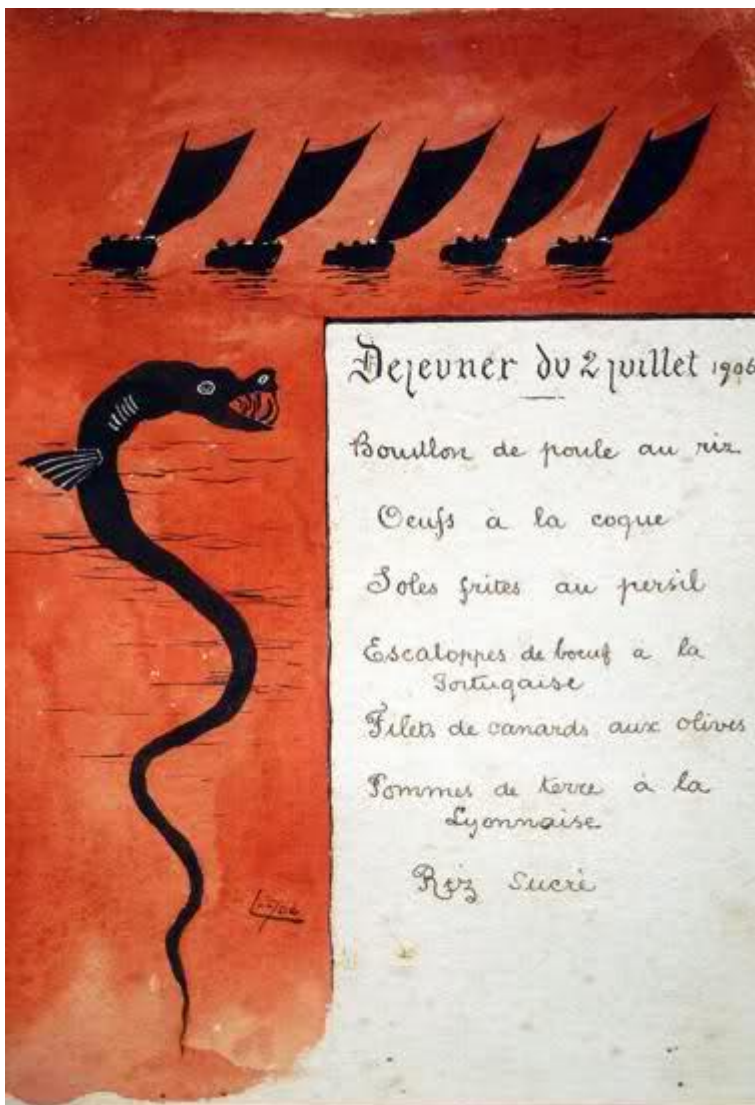 Dejeuner du 2 juillet 1906
Bouillon de poule au riz
Oeufs à la coque
Soles frites au persil
Escaloppes de boeuf a la
Portugaise
Filets de canards aux olives
Pommes de terre à la
Lyonnaise
Riz Sucré